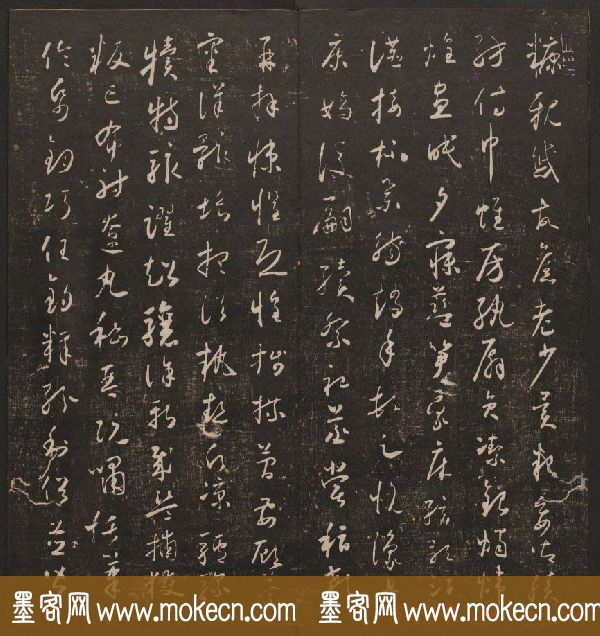 糠親戚故舊老少異粮妾御績
紡侍巾帷房紈扇員潔銀燭煒
煌晝眠夕寐藍笋象床弦歌酒
讌接杯舉觴矯手頓足悅豫且
康嫡後嗣續祭祀蒸嘗稽顙
再拜悚懼恐惶牋牒簡要顧答
審詳骸垢想浴執熱願涼驢騾
犢特駭躍超驤誅斬賊盜捕獲
叛亡布射遼丸嵇琴阮嘯恬筆
倫紙鈞巧任釣釋紛利俗並皆
墨客网 www.mokecn.com 墨客网 www.mokecn.com